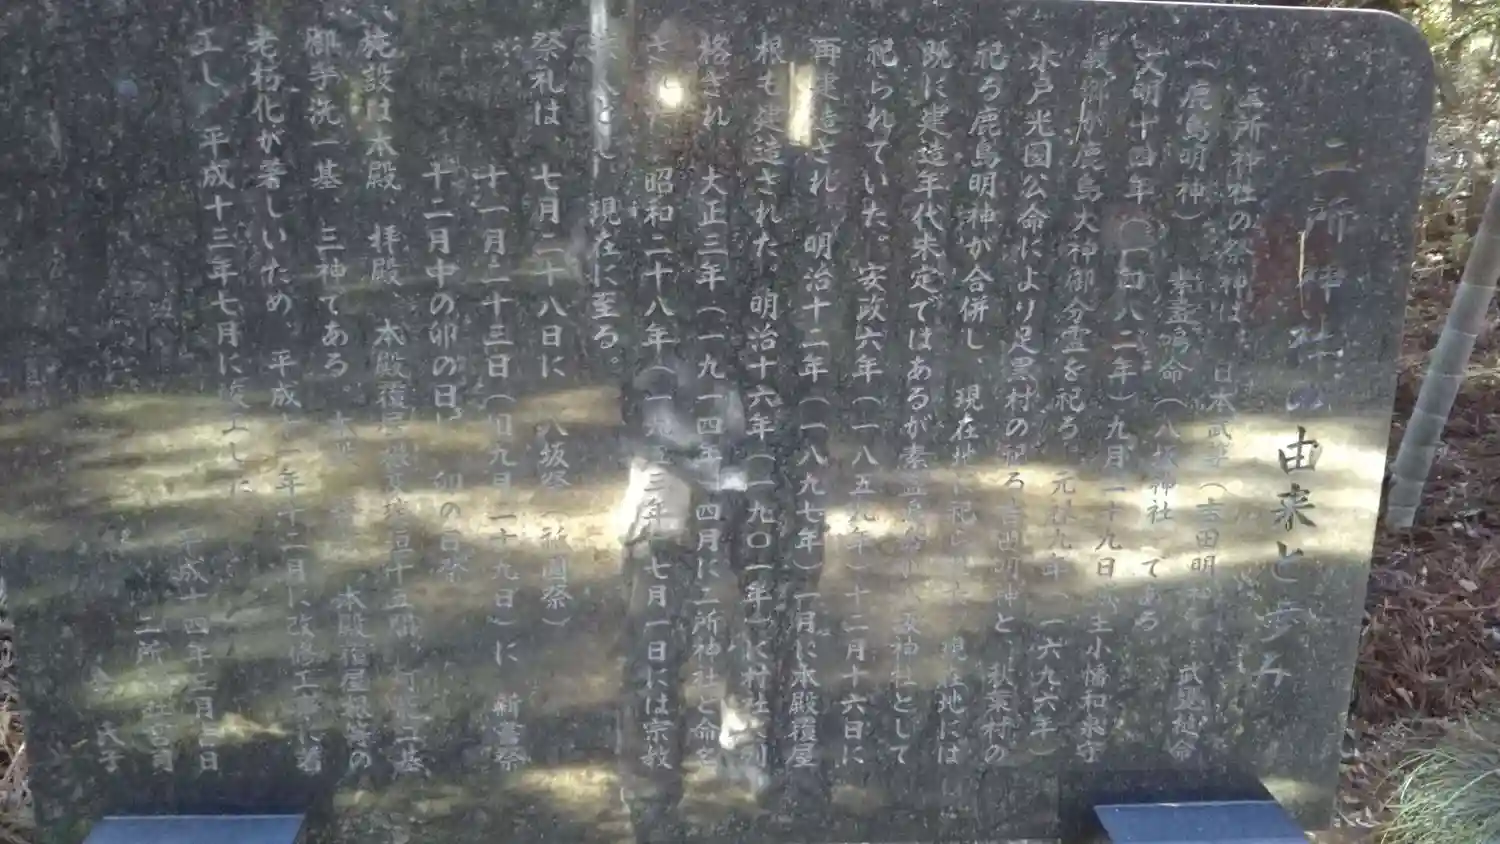 二所神社の由来と歩み
二所神社の祭神は、日本武尊（吉田明神）武甕槌命
（鹿島明神）素盞嗚命（八坂神社）である
文明十四年（一四八二年）九月二十九日 主小幡和泉守
義郷が鹿島大神御分霊を祀る。元禄九年 一六九六年）
水戸光圀公命により足黒村の祀る吉田明神と、秋葉村の
祀る鹿島明神が合併し、現在地に祀ら 現在地には
既に建造年代未定ではあるが素盞嗚命 神社として
祀られていた。安政六年（一八五九年）十二月十六日に
再建造され、明治十二年（一八九七年）一月に本殿覆屋
根も建造された。明治十六年（一九〇一年）に村社に列
格され 大正三年（一九一四年）四月に二所神社と命名
され 昭和二十八年（一九五三年）七月一日には宗教
法人とし、現在に至る。
祭礼は 七月二十八日に 八坂祭（祇園祭）
十一月二十三日（旧九月二十九日）に 新嘗祭
十二月中の卯の日に 卯の日祭
施設は本殿、拝殿、本殿覆屋 十五間、灯籠二基
御手洗一基、三神である 本殿覆屋根等の
老朽化が著しいため、平成十一年十二月に改修工事に着
工し、平成十三年七月に竣工した
平成十四年 月吉日
二所神社